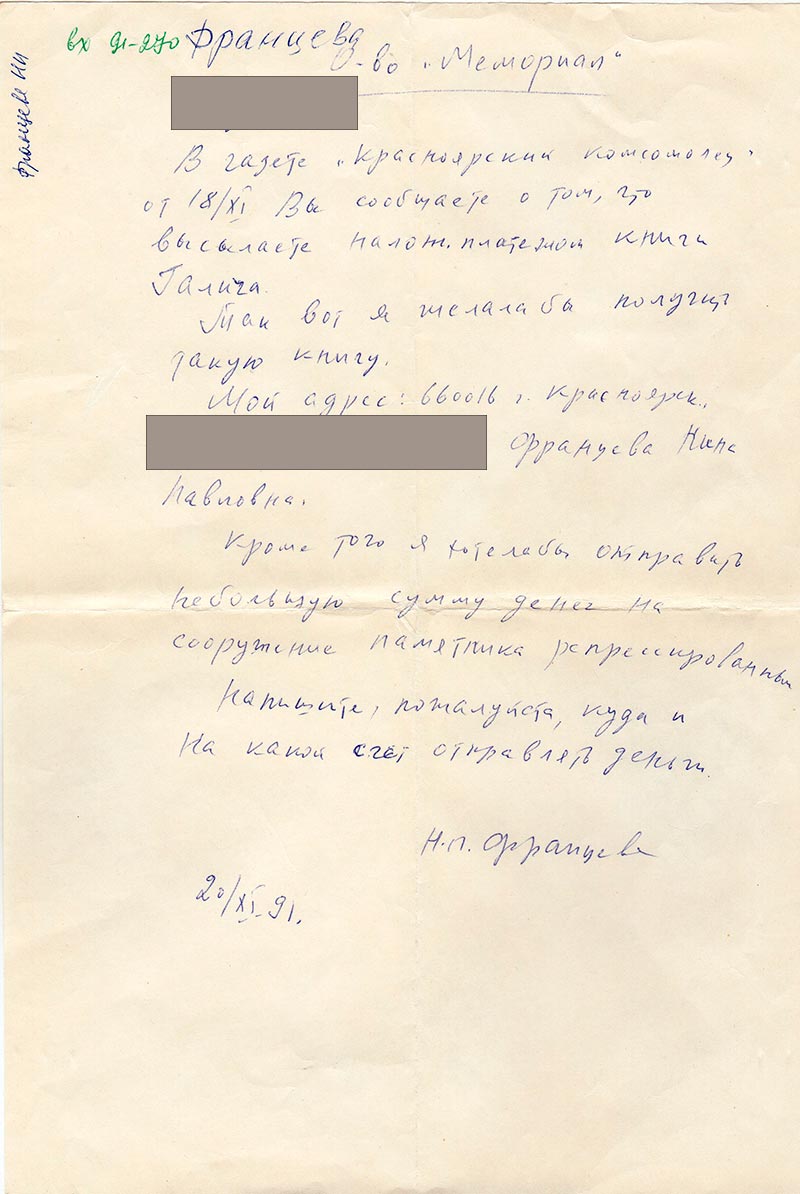 вх 91-270 Францева
О-во „Мемориал"
Францева НП
В газете „Красноярский комсомолец"
от 18/XI Вы сообщаете о том, что
высылаете налож. платежом книги
Галича.
Так вот я желала бы получить
такую книгу.
Мой адрес: 660016 г. Красноярск,
Францева Нина
Павловна.
Кроме того я хотела бы отправить
небольшую сумму денег на
сооружение памятника репрессированным
Напишите, пожалуйста, куда и
на какой счёт отправлять деньги.
Н.П. Францева
20/XI-91.